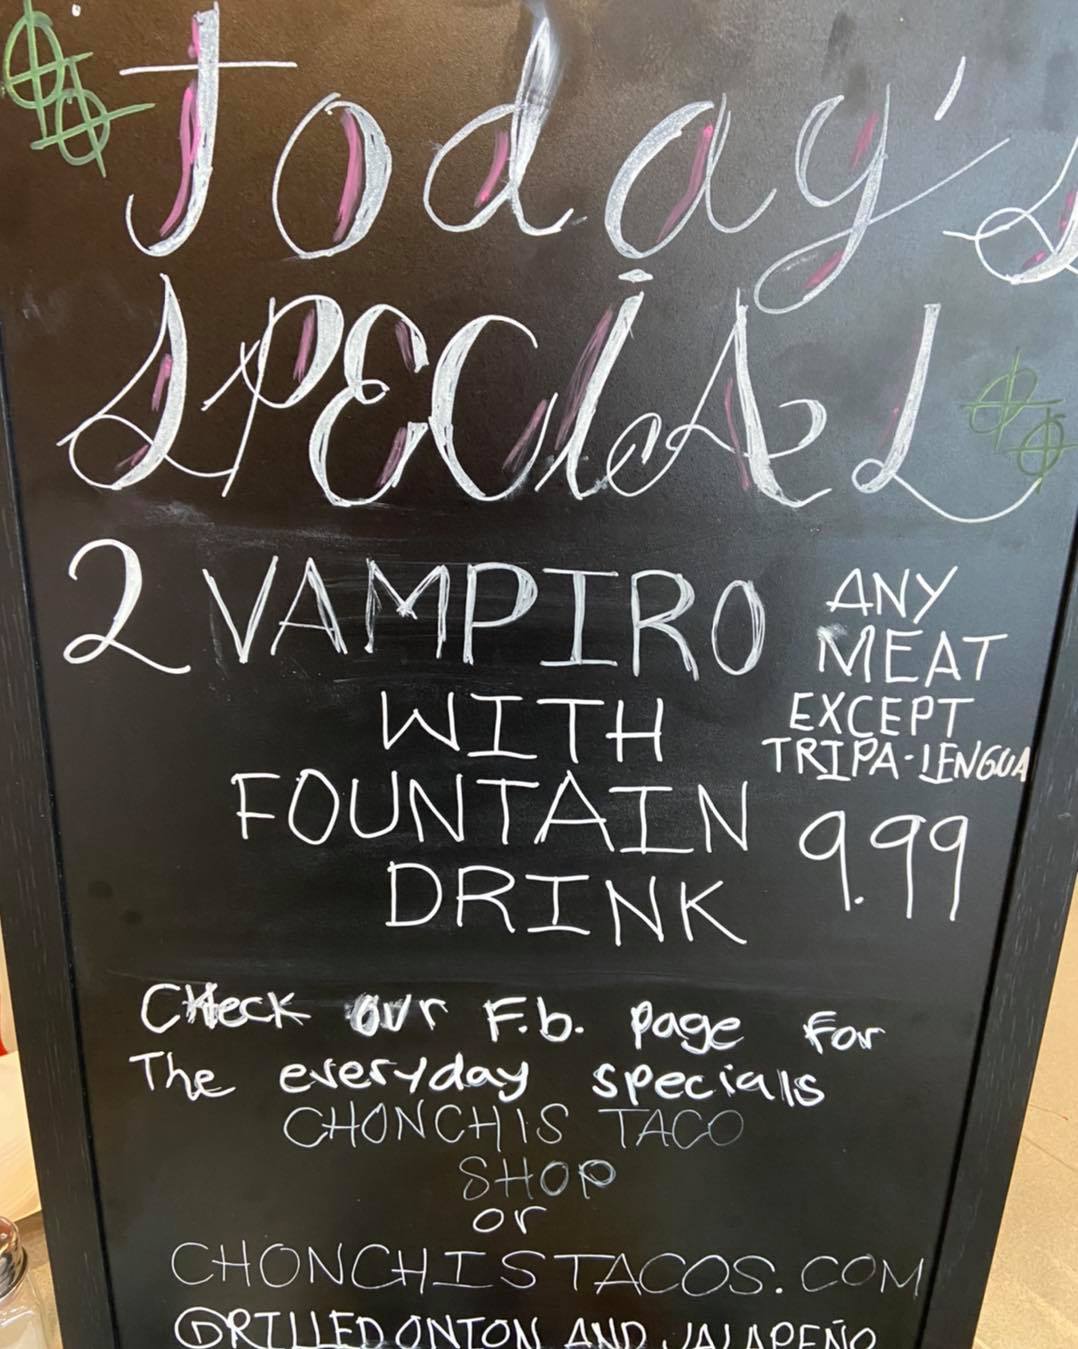 Today's
SPECIAL
2 VAMPIRO
WITH
FOUNTAIN
DRINK
ANY
MEAT
EXCEPT
TRIPA-LENGUA
9.99
CHeck our F.b. page for
The everyday specials
CHONCHIS TACO
SHOP
or
CHONCHISTACOS.COM
GRILLED ONION AND JALAPEÑO